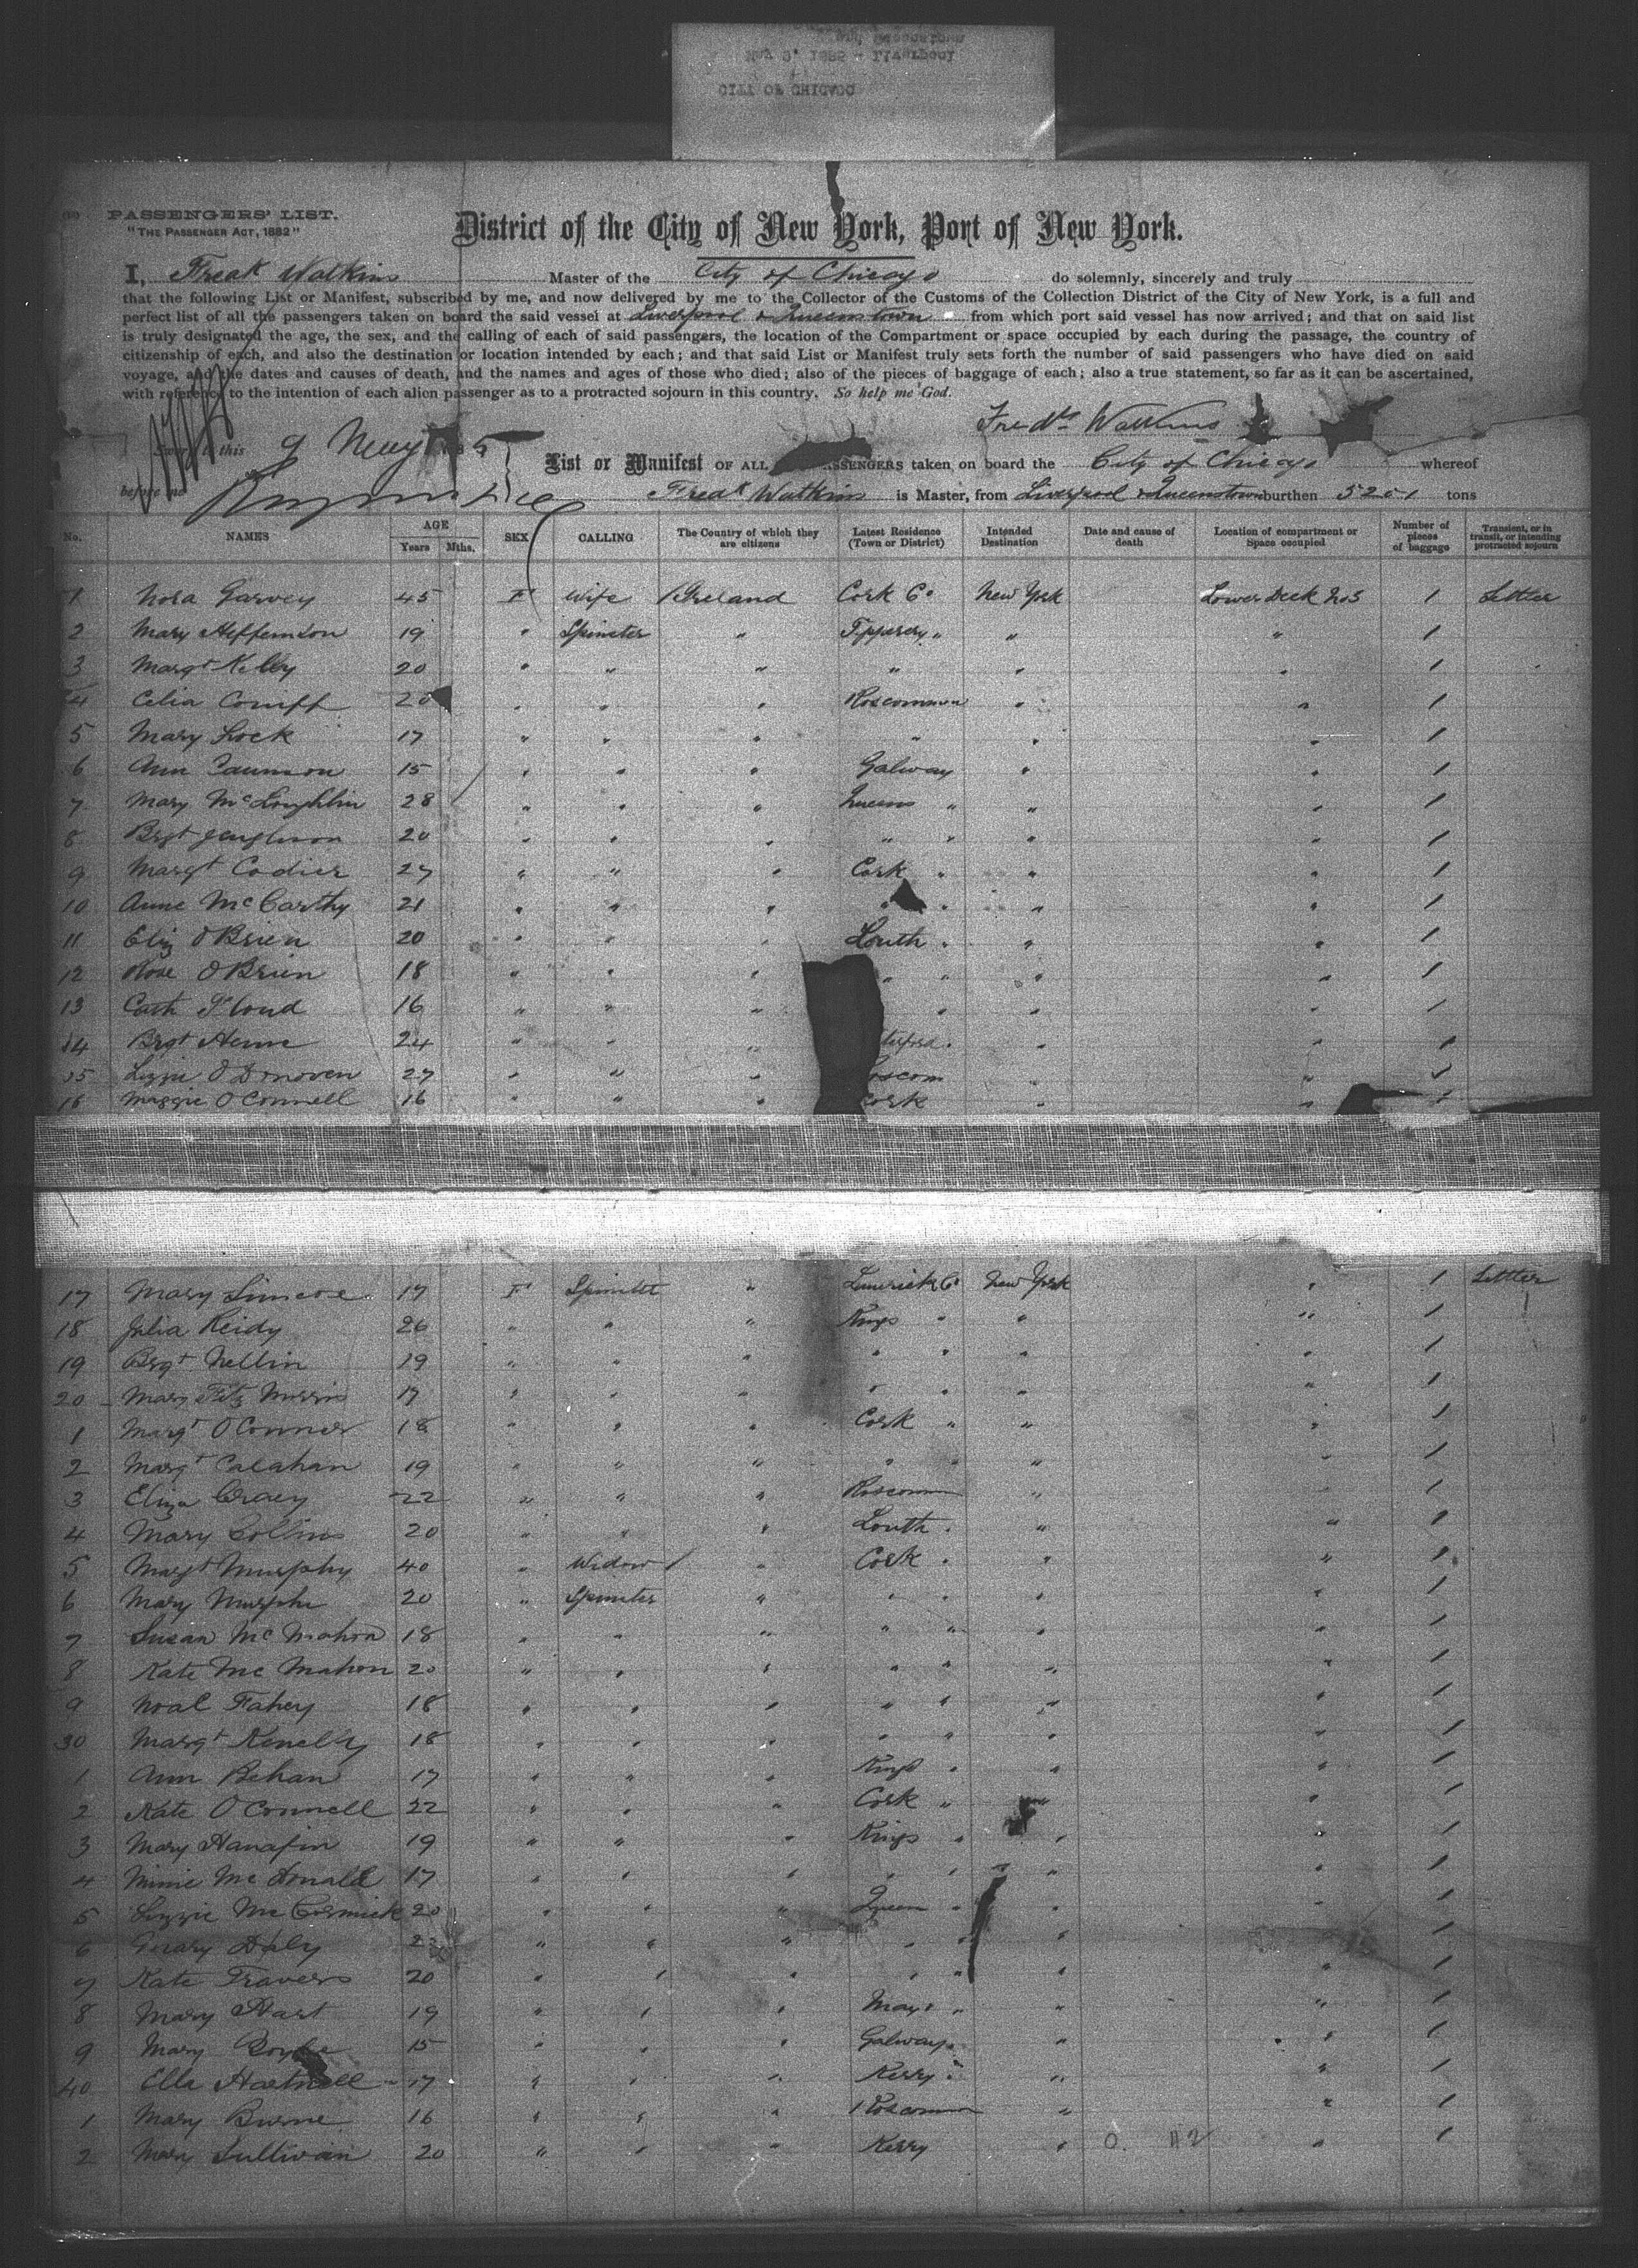 CITY OF CHICAGO
PASSENGERS' LIST.
"THE PASSENGER ACT, 1882"
District of the City of New York, Port of New York.
I, Fredk Watkins Master of the City of Chicago do solemnly, sincerely and truly
that the following List or Manifest, subscribed by me, and now delivered by me to the Collector of the Customs of the Collection District of the City of New York, is a full and
perfect list of all the passengers taken on board the said vessel at Liverpool & Queenstown from which port said vessel has now arrived; and that on said list
is truly designated the age, the sex, and the calling of each of said passengers, the location of the Compartment or space occupied by each during the passage, the country of
citizenship of each, and also the destination or location intended by each; and that said List or Manifest truly sets forth the number of said passengers who have died on said
voyage, and the dates and causes of death, and the names and ages of those who died; also of the pieces of baggage of each; also a true statement, so far as it can be ascertained,
with reference to the intention of each alien passenger as to a protracted sojourn in this country. So help me God.
Fredk Watkins
this 9 May 5
List or Manifest OF ALL PASSENGERS taken on board the City of Chicago whereof
before me
Fredk Watkins is Master, from Liverpool & Queenstown burthen 5201 tons
No. NAMES AGE Years Mths. SEX CALLING The Country of which they are citizens Latest Residence (Town or District) Intended Destination Date and cause of death Location of compartment or Space occupied Number of pieces of baggage Transient, or in transit, or intending protracted sojourn
1 Nora Garvey 45 F Wife Ireland Cork Co New York Lower Deck No5 1 Settler
2 Mary Heffernon 19 " Spinster " Tipperary " " " 1
3 Margt Kelly 20 " " " " " " 1
4 Celia Conniff 20 " " " Roscommon " " 1
5 Mary Lock 17 " " " " " " 1
6 Ann 15 " " " Galway " " 1
7 Mary McLoughlin 28 " " " Queens " " " 1
8 Brgt 20 " " " " " " " 1
9 Margt Codier 27 " " " Cork " " " 1
10 Anne McCarthy 21 " " " " " " " 1
11 Eliz O'Brien 20 " " " Louth " " " 1
12 Rose O'Brien 18 " " " " " " " 1
13 Cath 16 " " " " " " 1
14 Brgt 24 " " " terford " " " 1
15 Lizzie O'Donoven 27 " " " oscom " 1
16 Maggie O'Connell 16 " " " Cork " " 1
17 Mary Simcoe 17 F Spinster " Limerick Co New York " 1 Settler
18 Julia Reidy 26 " " " Kings " " " 1
19 Brgt Nellin 19 " " " " " " " 1
20 Mary Fitz Morris 17 " " " " " " " 1
1 Margt O'Connor 18 " " " Cork " " " 1
2 Margt Calahan 19 " " " " " " 1
3 Eliza 22 " " " Roscommon " " 1
4 Mary Collins 20 " " " Louth " " " 1
5 Margt Murphy 40 " Widow " Cork " " " 1
6 Mary Murphy 20 " Spinster " " " " " 1
7 Susan McMahon 18 " " " " " " " 1
8 Kate McMahon 20 " " " " " " " 1
9 Noal Fahey 18 " " " " " " " 1
30 Margt Kenelly 18 " " " " " " " 1
1 Ann Behan 17 " " " Kings " " " 1
2 Kate O'Connell 22 " " " Cork " " " 1
3 Mary Hanafin 19 " " " Kings " " " 1
4 Minie McDonald 17 " " " " " " " 1
5 Lizzie McCormick 20 " " " Queen " " " 1
6 Daly " " " " " " " 1
7 Kate Travers 20 " " " " " " " 1
8 Mary Hart 19 " " " Mayo " " " 1
9 Mary Boyle 15 " " " Galway " " " 1
40 Ella Hartnell 17 " " " Kerry " " " 1
1 Mary Burne 16 " " " Roscommon " " 1
2 Mary Sullivan 20 " " " Kerry " " 1